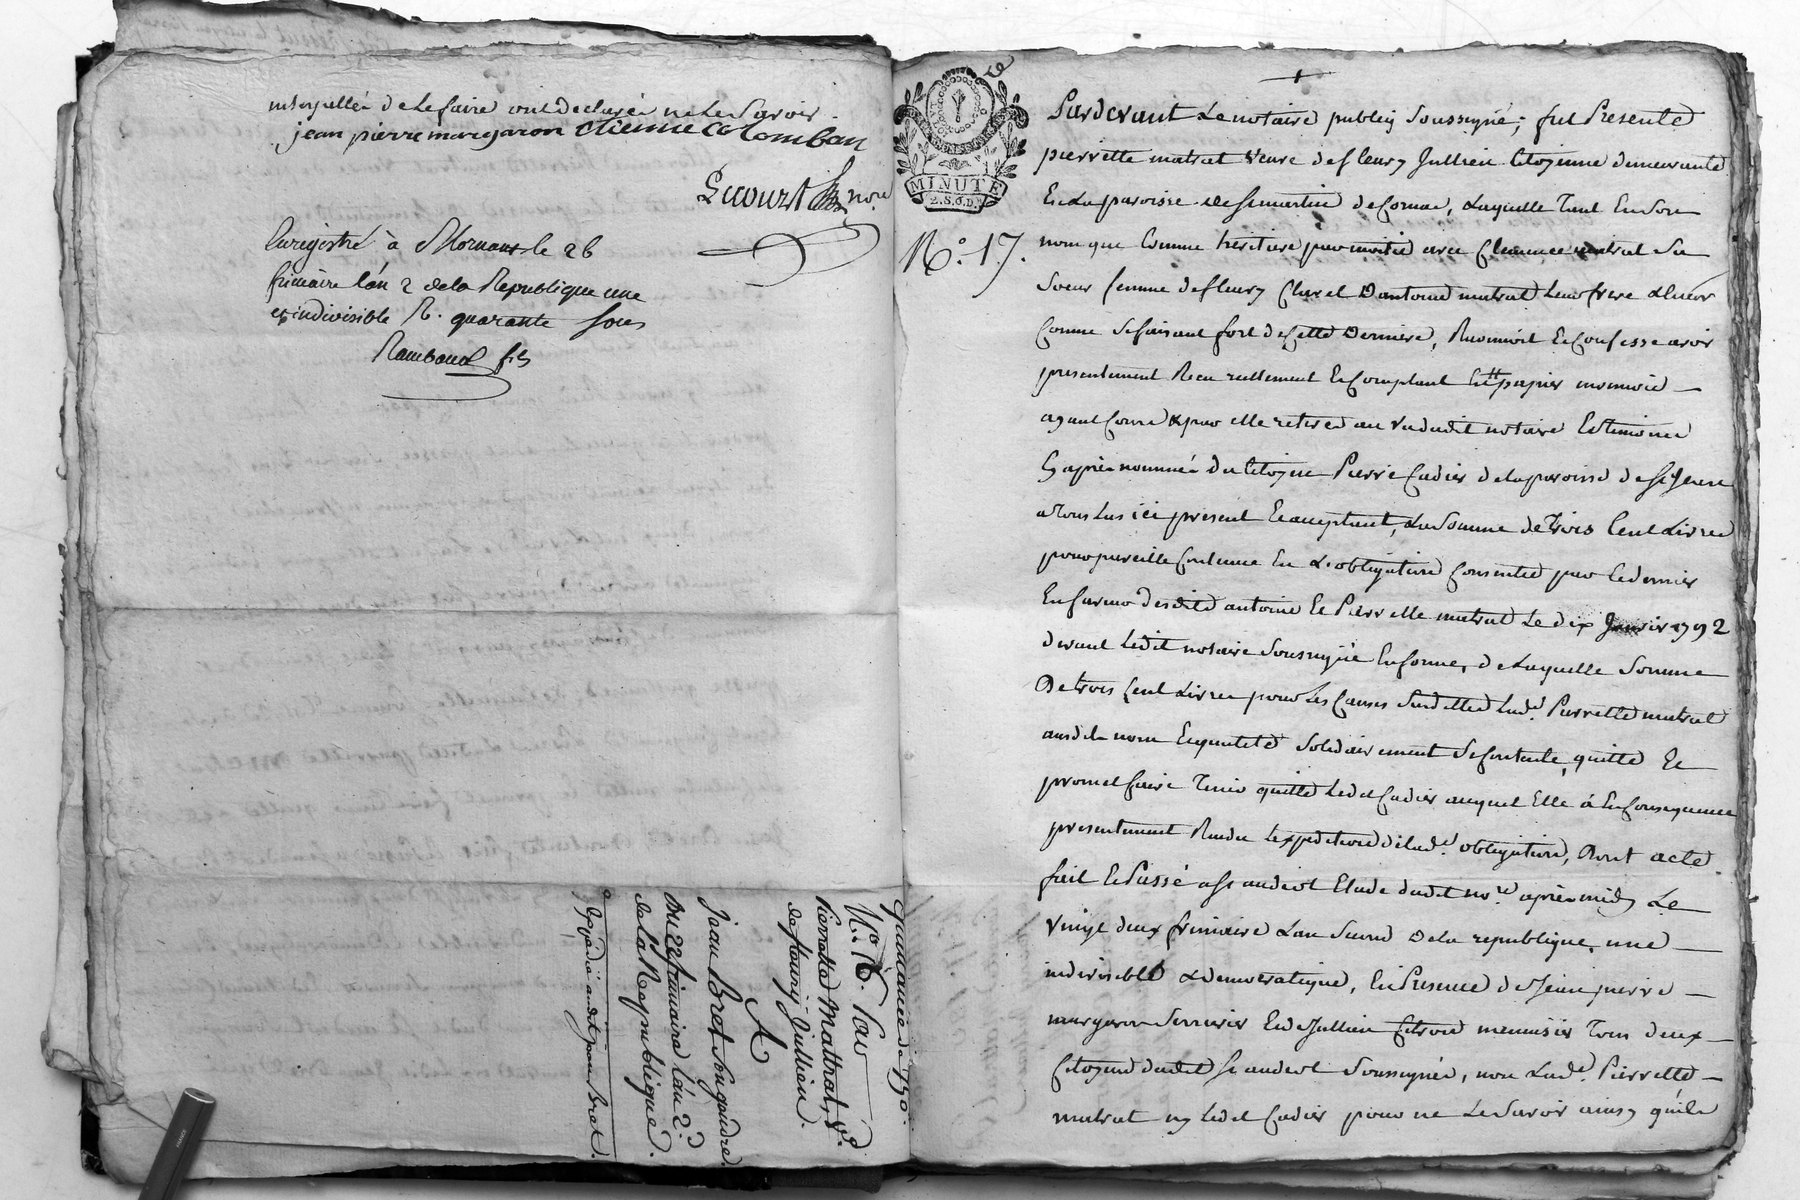 interpellés de le faire ont declarés ne le Savoir.
jean pierre margaron etienne Colomban
Lecourt nore
Enregistré à Mornant le 26
frimaire l'an 2 de la Republique une
et indivisible R. quarante Sous
Rambaud fils
quittance de 750.
N.o 16. Par
Pierrette Mattrat, Ve.
de fleury Jullien.
A
Jean Bret Son gendre.
Du 22 frimaire l'an 2.d
de la Republique.
Expédié audit jean Bret.
MINUTE
2. S. 6. D.
N.o 17.
Pardevant Le notaire public Soussigné; fut Presente
pierrette matrat veuve de fleury Jullien Citoyenne demeurante
En La paroisse de St martin de Cornas, Laquelle Tant En Son
nom que Comme heritiere par moitié avec Clemence matrat Sa
Soeur femme de fleury Clavel D'antoine matrat Leur frere &
Comme Se faisant fort de Cette Derniere, Reconnoit Et Confesse avoir
presentement Recu reellement Et Comptant En papier monnoie
ayant Cours & par elle retirée au vu dudit notaire Et temoins
Cy après nommés du Citoyen Pierre Cadier de la paroisse de St Jean
a Tous Las ici present Et acceptant, La Somme de Trois Cent Livres
pour pareille Contenue En L'obligation Consentie par Ce dernier
En faveur desdits antoine Et Pierrette matrat Le dix Janvier 1792
devant Ledit notaire Soussigné En forme, de Laquelle Somme
De trois Cent Livres pour Les Causes Susdittes Lad.e Pierrette matrat
audit nom En qualité Solidairement Se Contente, quitte Et
promet faire Tenir quitte Ledit Cadier auquel Elle à En Consequence
presentement Rendu L'expedition de Lad.e obligation, Dont acte
fait Et Passé a St andeol Etude dudit no.re après midy Le
Vingt deux frimaire L'an Second De la republique, une
indivisible & democratique, En Presence de Jean pierre
margaron Serrurier Et de Jullien menuisier Tous deux
Citoyens dudit St andeol Soussignés, non Lad.e Pierrette
matrat ny Ledit Cadier pour ne Le Savoir ainsy qu'ils